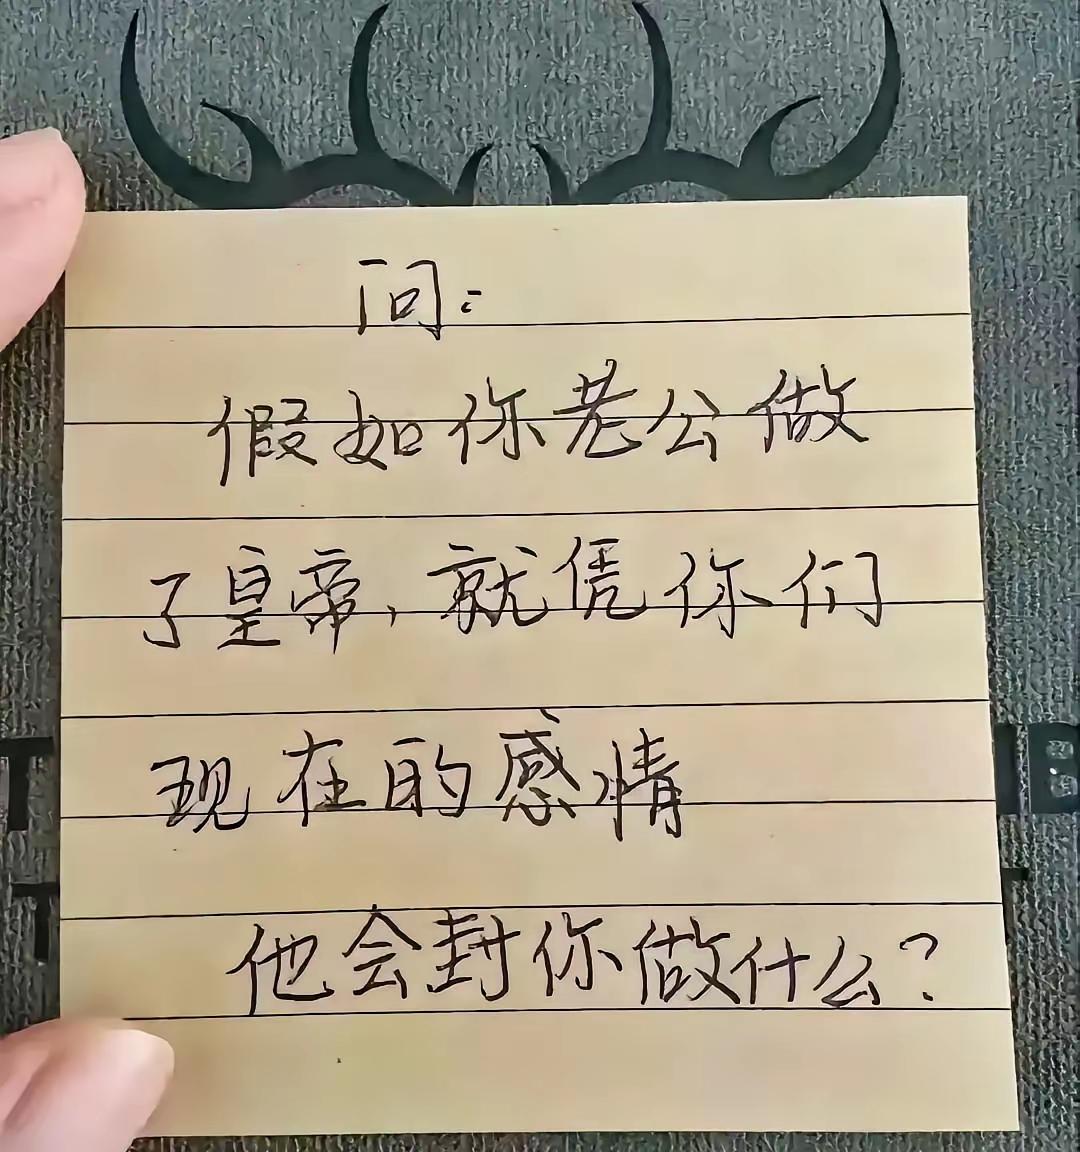 问:
假如你老公做
了皇帝,就凭你们
现在的感情
他会封你做什么?
T
T
IB
T